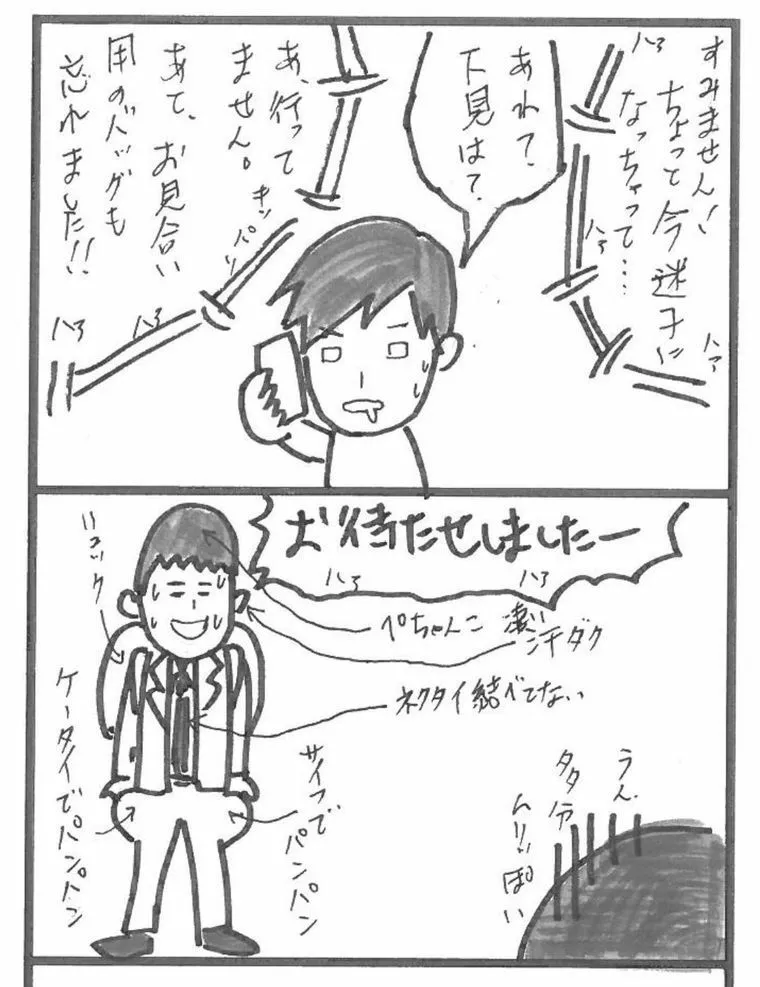 すみません!
ちょっと今迷子に
なっちゃって……
ハァ
ハァ
ハァ
あれ?
下見は?
あ、行って
ません。
あて、お見合い
用のバッグも
忘れました!!
キンパリ
ハァ
ハァ
お待たせしましたー
ハァ
ハァ
ぺちゃんこ
凄い
汗ダク
ネクタイ結べてない
リュック
ケータイでパンパン
サイフで
パンパン
うん、
タタ分
ムリっぽい